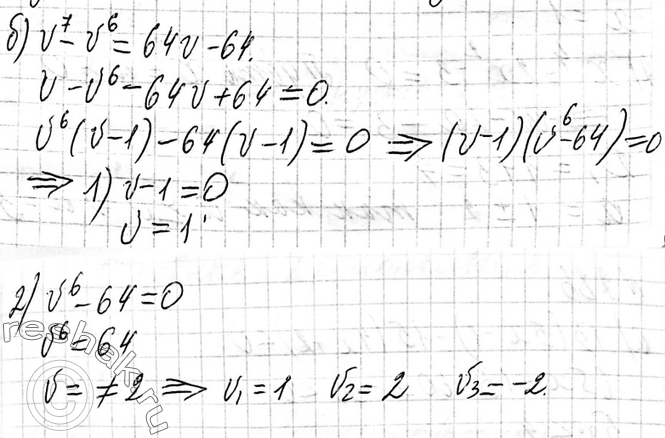 б) v⁷ - v⁶ = 64v - 64.
v - v⁶ - 64v + 64 = 0.
v⁶(v-1) - 64(v-1) = 0 ⇒ (v-1)(v⁶-64) = 0
⇒ 1) v-1 = 0
v = 1
2) v⁶ - 64 = 0
v⁶ = 64
v = ≠2 ⇒ v₁ = 1 v₂ = 2 v₃ = -2.
reshak.ru